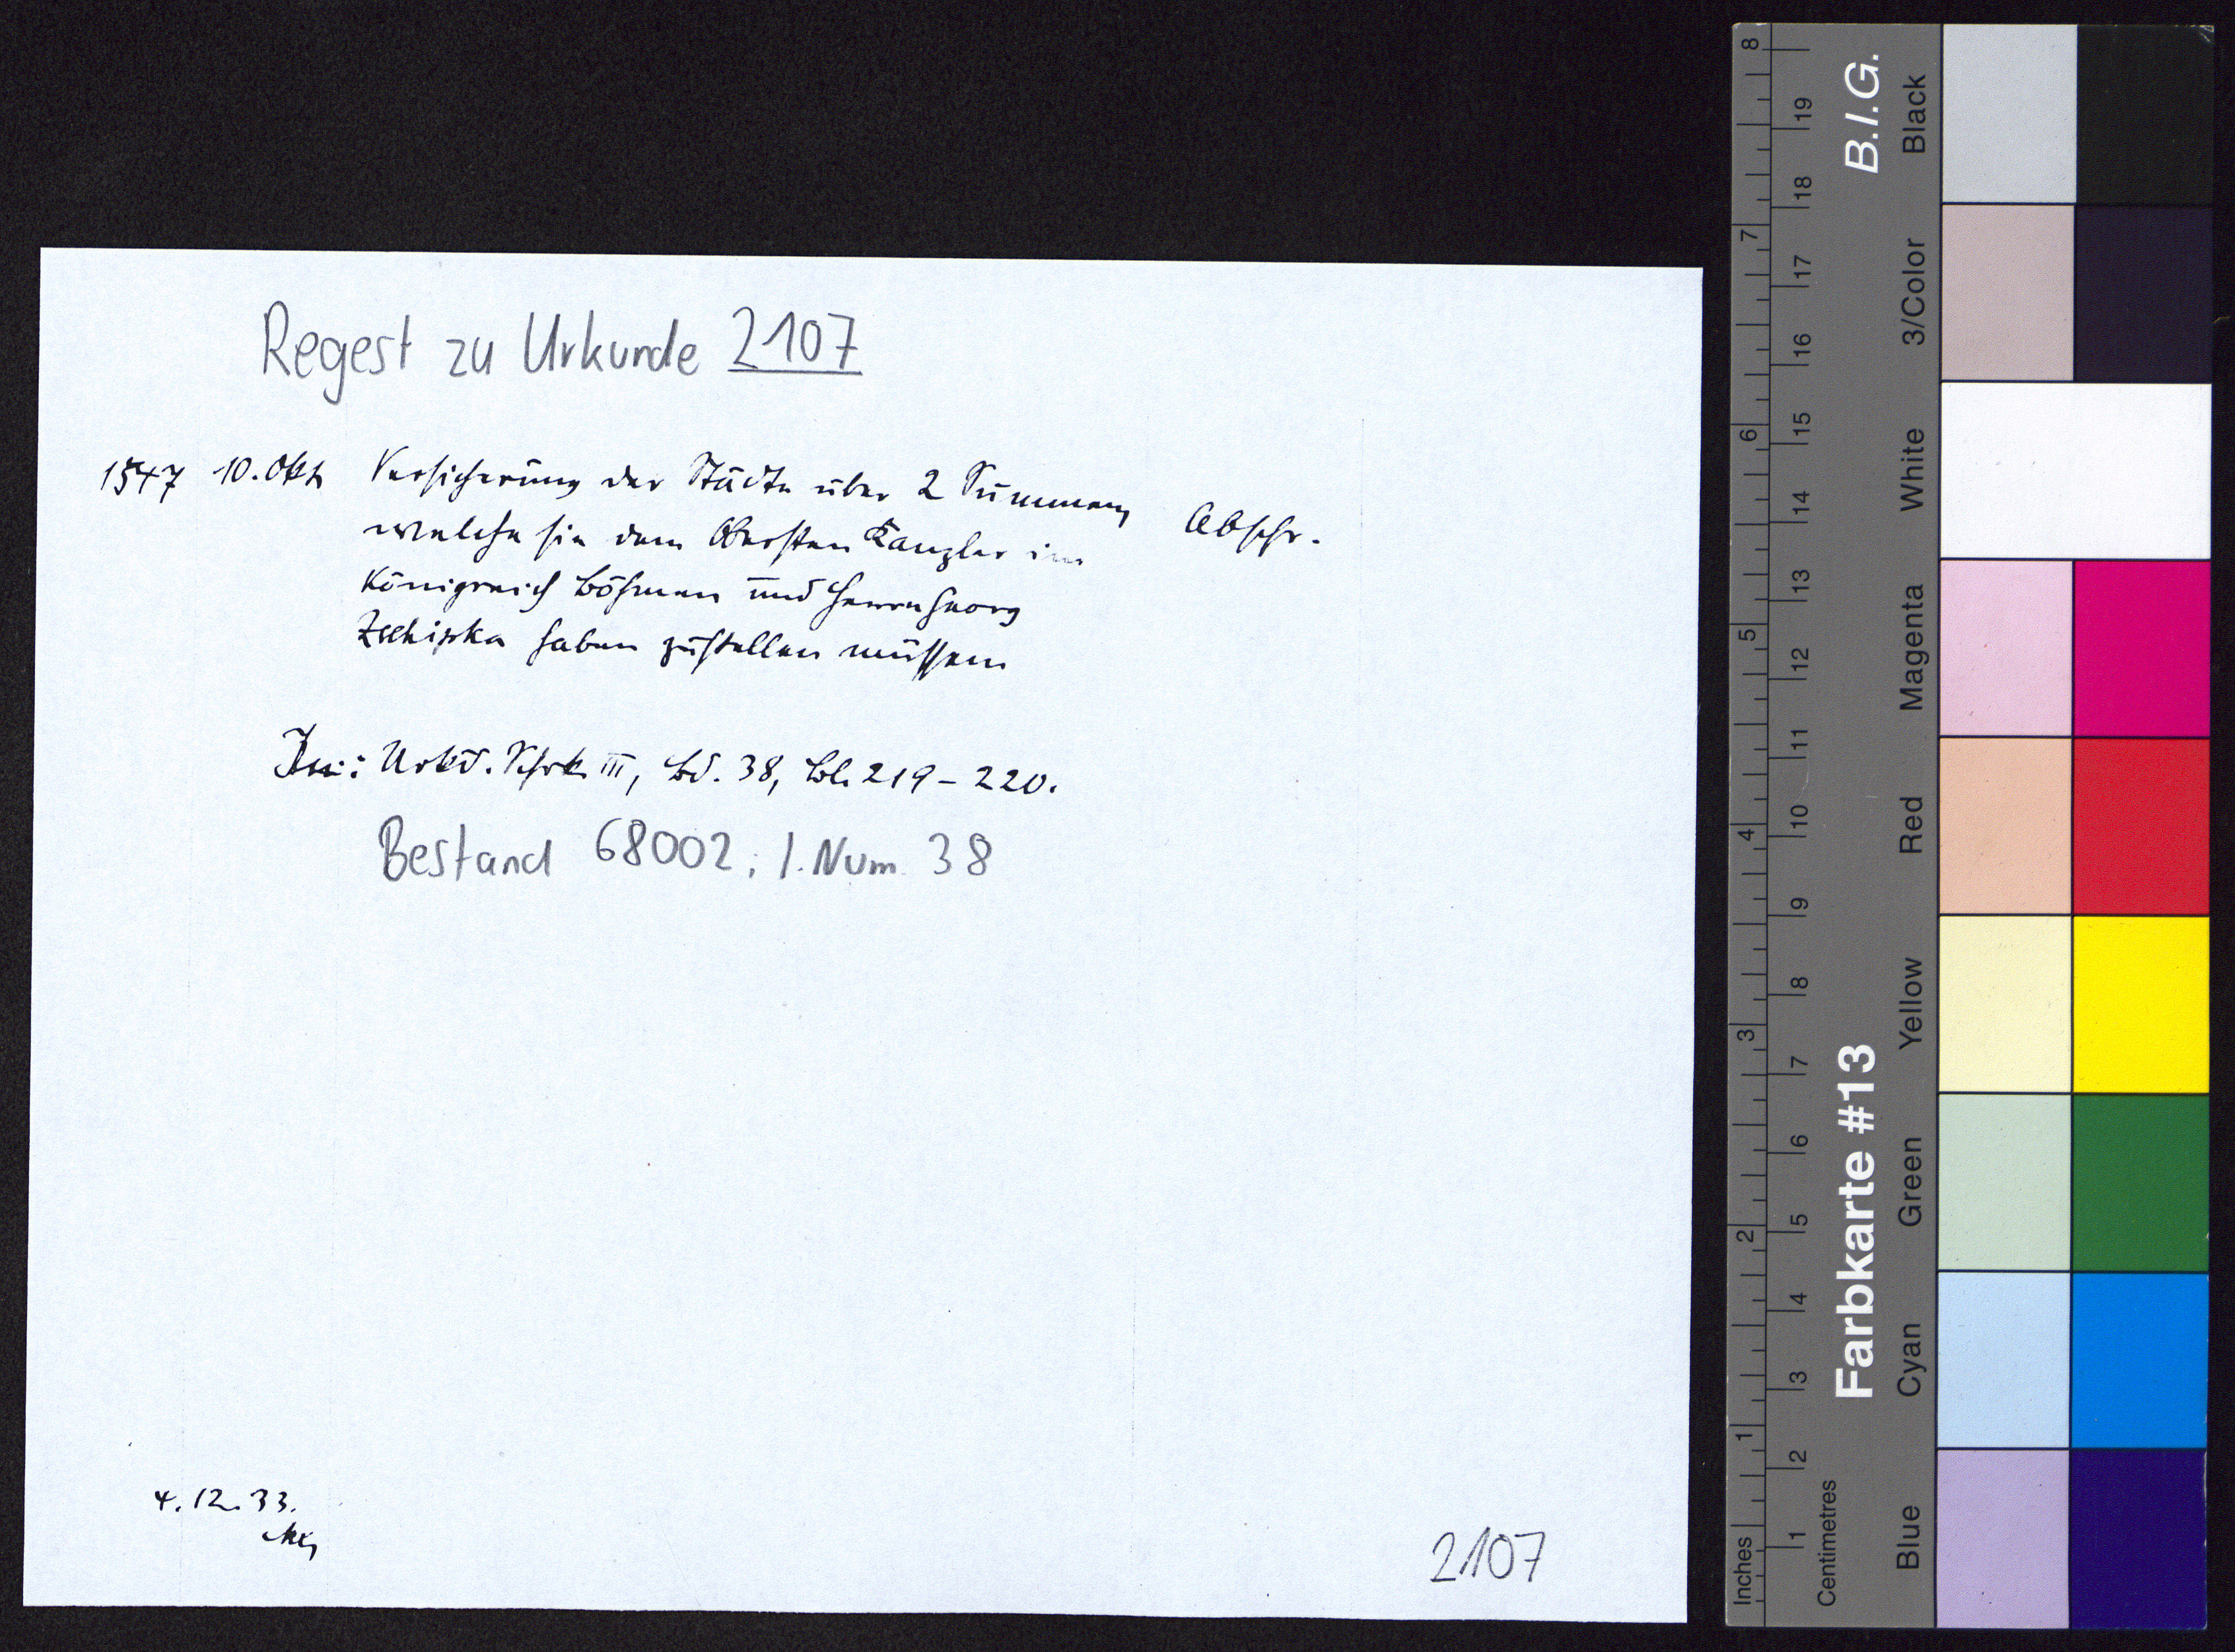 Regest zu Urkunde 2107
1547 10. Okt. Versicherung der Städte über 2 Summen, Abschr.
welche sie dem Obersten Kanzler im
Königreich Böhmen und Herrn Georg
Zschiska haben zustellen müssen
In: Urkd. Vhrk. III, Bd. 38, Bl. 219-220.
Bestand 68002; l. Num. 38
4.12.33.
2107
B.I.G.
Farbkarte #13
Black
3/Color
White
Magenta
Red
Yellow
Green
Cyan
Blue
Inches 1 2 3 4 5 6 7 8
Centimetres 1 2 3 4 5 6 7 8 9 10 11 12 13 14 15 16 17 18 19